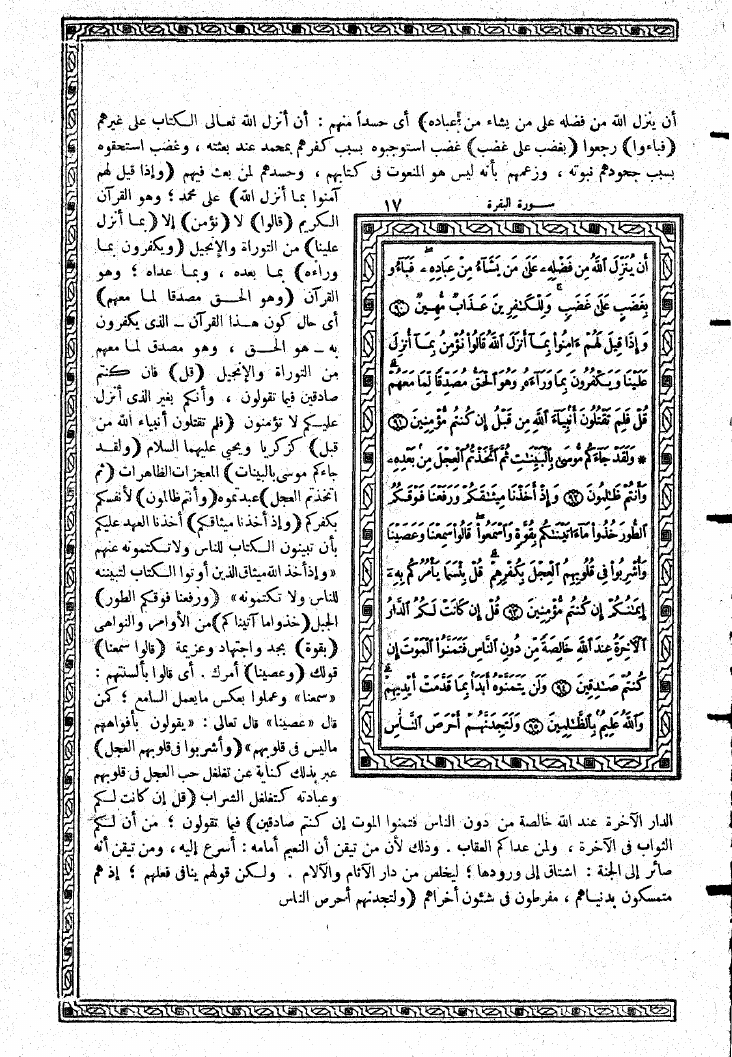 أن ينزل الله من فضله على من يشاء من عباده) أى حسداً منهم : أن أنزل الله تعالى الكتاب على غيرهم
(فباءوا) رجعوا (بغضب على غضب) غضب استوجبوه بسبب كفرهم بمحمد عند بعثته ، وغضب استحقوه
بسبب جحودهم نبوته ، وزعمهم بأنه ليس هو المنعوت فى كتابهم ، وحسدهم لمن بعث فيهم (وإذا قيل لهم
آمنوا بما أنزل الله) على محمد ؛ وهو القرآن
الكريم (قالوا) لا (نؤمن) إلا (بما أنزل
علينا) من التوراة والإنجيل (ويكفرون بما
وراءه) بما بعده ، وبما عداه ؛ وهو
القرآن (وهو الحق مصدقا لما معهم)
أى حال كون هذا القرآن ــ الذى يكفرون
به ــ هو الحق ، وهو مصدق لما معهم
من التوراة والإنجيل (قل) فان كنتم
صادقين فيما تقولون ، وأنكم بغير الذى أنزل
عليكم لا تؤمنون (فلم تقتلون أنبياء الله من
قبل) كزكريا ويحيى عليهما السلام (ولقد
جاءكم موسى بالبينات) المعجزات الظاهرات (ثم
اتخذتم العجل) عبدتموه (وأنتم ظالمون) لأنفسكم
بكفركم (وإذ أخذنا ميثاقكم) أخذنا العهد عليكم
بأن تبينون الكتاب للناس ولا تكتمونه عنهم
«وإذ أخذ الله ميثاق الذين أوتوا الكتاب لتبيننه
للناس ولا تكتمونه» (ورفعنا فوقكم الطور)
الجبل (خذوا ما آتيناكم) من الأوامر والنواهى
(بقوة) بجد واجتهاد وعزيمة (قالوا سمعنا)
قولك (وعصينا) أمرك . أى قالوا بألسنتهم :
«سمعنا» وعملوا بعكس ما يعمل السامع ؛ كمن
قال «عصينا» قال تعالى : «يقولون بأفواههم
ما ليس فى قلوبهم» (وأشربوا فى قلوبهم العجل)
عبر بذلك كناية عن تغلغل حب العجل فى قلوبهم
وعبادته كتغلغل الشراب (قل إن كانت لكم
سورة البقرة ١٧
أَن يُنَزِّلَ اللَّهُ مِن فَضْلِهِۦ عَلَىٰ مَن يَشَآءُ مِنْ عِبَادِهِۦ فَبَآءُو
بِغَضَبٍ عَلَىٰ غَضَبٍ وَلِلْكَٰفِرِينَ عَذَابٌ مُّهِينٌ ﴿٩٠﴾
وَإِذَا قِيلَ لَهُمْ ءَامِنُوا بِمَآ أَنزَلَ اللَّهُ قَالُوا نُؤْمِنُ بِمَآ أُنزِلَ
عَلَيْنَا وَيَكْفُرُونَ بِمَا وَرَآءَهُۥ وَهُوَ الْحَقُّ مُصَدِّقًا لِّمَا مَعَهُمْ
قُلْ فَلِمَ تَقْتُلُونَ أَنۢبِيَآءَ اللَّهِ مِن قَبْلُ إِن كُنتُم مُّؤْمِنِينَ ﴿٩١﴾
* وَلَقَدْ جَآءَكُم مُّوسَىٰ بِالْبَيِّنَٰتِ ثُمَّ اتَّخَذْتُمُ الْعِجْلَ مِنۢ بَعْدِهِۦ
وَأَنتُمْ ظَٰلِمُونَ ﴿٩٢﴾ وَإِذْ أَخَذْنَا مِيثَٰقَكُمْ وَرَفَعْنَا فَوْقَكُمُ
الطُّورَ خُذُوا مَآ ءَاتَيْنَٰكُم بِقُوَّةٍ وَاسْمَعُوا قَالُوا سَمِعْنَا وَعَصَيْنَا
وَأُشْرِبُوا فِى قُلُوبِهِمُ الْعِجْلَ بِكُفْرِهِمْ قُلْ بِئْسَمَا يَأْمُرُكُم بِهِۦٓ
إِيمَٰنُكُمْ إِن كُنتُم مُّؤْمِنِينَ ﴿٩٣﴾ قُلْ إِن كَانَتْ لَكُمُ الدَّارُ
الْءَاخِرَةُ عِندَ اللَّهِ خَالِصَةً مِّن دُونِ النَّاسِ فَتَمَنَّوُا الْمَوْتَ إِن
كُنتُمْ صَٰدِقِينَ ﴿٩٤﴾ وَلَن يَتَمَنَّوْهُ أَبَدًۢا بِمَا قَدَّمَتْ أَيْدِيهِمْ
وَاللَّهُ عَلِيمٌۢ بِالظَّٰلِمِينَ ﴿٩٥﴾ وَلَتَجِدَنَّهُمْ أَحْرَصَ النَّاسِ
الدار الآخرة عند الله خالصة من دون الناس فتمنوا الموت إن كنتم صادقين) فيما تقولون ؛ من أن لكم
الثواب فى الآخرة ، ولمن عداكم العقاب . وذلك لأن من تيقن أن النعيم أمامه : أسرع إليه ، ومن تيقن أنه
صائر إلى الجنة : اشتاق إلى ورودها ؛ ليخلص من دار الآثام والآلام . ولكن قولهم ينافى فعلهم ؛ إذ هم
متمسكون بدنياهم ، مفرطون فى شئون أخراهم (ولتجدنهم أحرص الناس